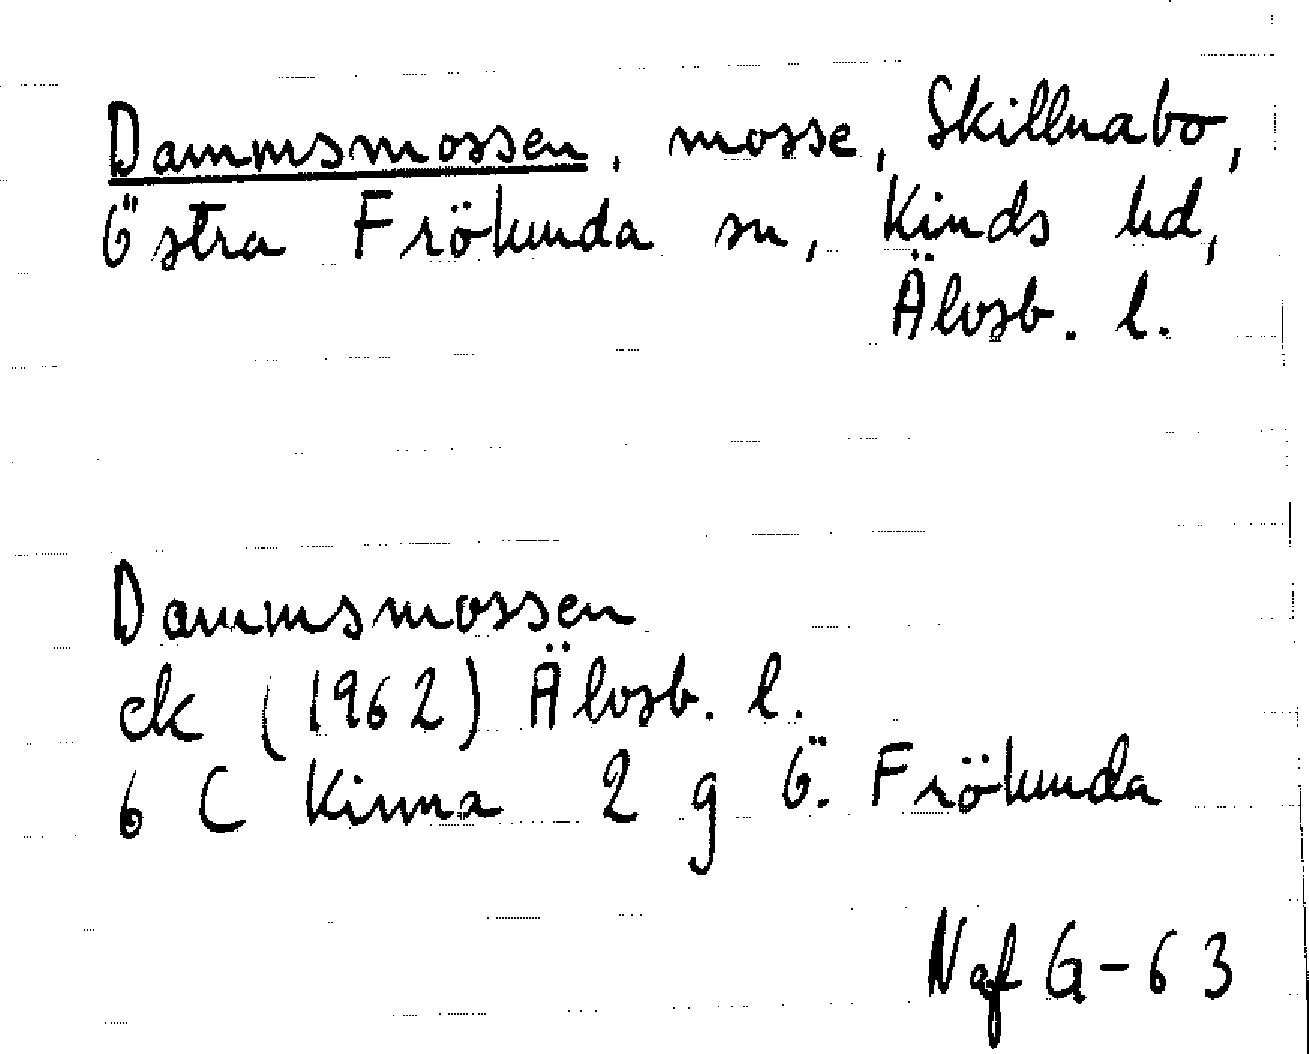 Dammsmossen, mosse, Skillnabo,
Östra Frölunda sn, Kinds hd,
Älvsb. l.
Dammsmossen
ek (1962) Älvsb. l.
6 C Kinna 2 g Ö. Frölunda
Naf G-63